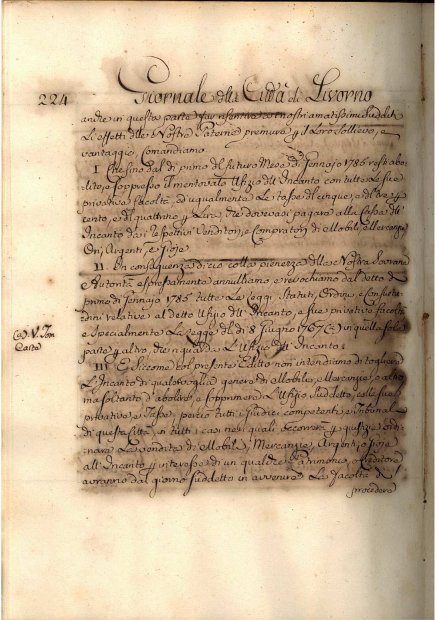 224 Giornale della Città di Livorno
anche in questa parte far risentire ai nostri amatissimi Sudditi
Le effetti delle Nostre Paterne premure p il Loro Sollievo, e
vantaggio, Comandiamo
I. Che sino dal dì primo del futuro Mese di Gennajo 1786 resti abo
lito, e soppresso il mentovato Ufizio dell' Incanto con tutte Le sue
privative facoltà, ed ugualmente Le tasse del cinque, e del tre p
cento, e di quattrino p Lira, che dovevasi pagare alla Cassa dell'
Incanto dai respettivi Venditori, e Compratori di Mobili, e Mercanzie
Ori, Argenti, e Gioje
II. In conseguenza di ciò colla pienezza della Nostra Sovrana
Autorità espressamente annulliamo, e revochiamo dal detto dì
primo di Gennajo 1786 tutte Le Leggi, Statuti, Ordini, e Consuetu
dini relative al detto Ufizio dell' Incanto, e sue privative facoltà
e specialmente La Legge del dì 8 Giugno 1767 (a) in quella sola
parte p altro, che riguarda L' Ufizio dell' Incanto:
(a) V. Tom
Carte
III. E Siccome col presente Editto non intendiamo di togliere
L' Incanto di qualsivoglia genere di Mobili, e Mercanzie, o altro
ma soltanto d' abolire, e sopprimere L' Ufizio suddetto, colle sue
privative, e Tasse; perciò tutti i Giudici competenti, e Tribunali
di questa Città in tutti i casi nei quali occorrerà p giustizia ordi
nare La vendita di Mobili, Mercanzie, Argenti, o gioje
all' Incanto p interesse di un qualche Patrimonio, o Creditore
avranno dal giorno suddetto in avvenire La facoltà di
procedere